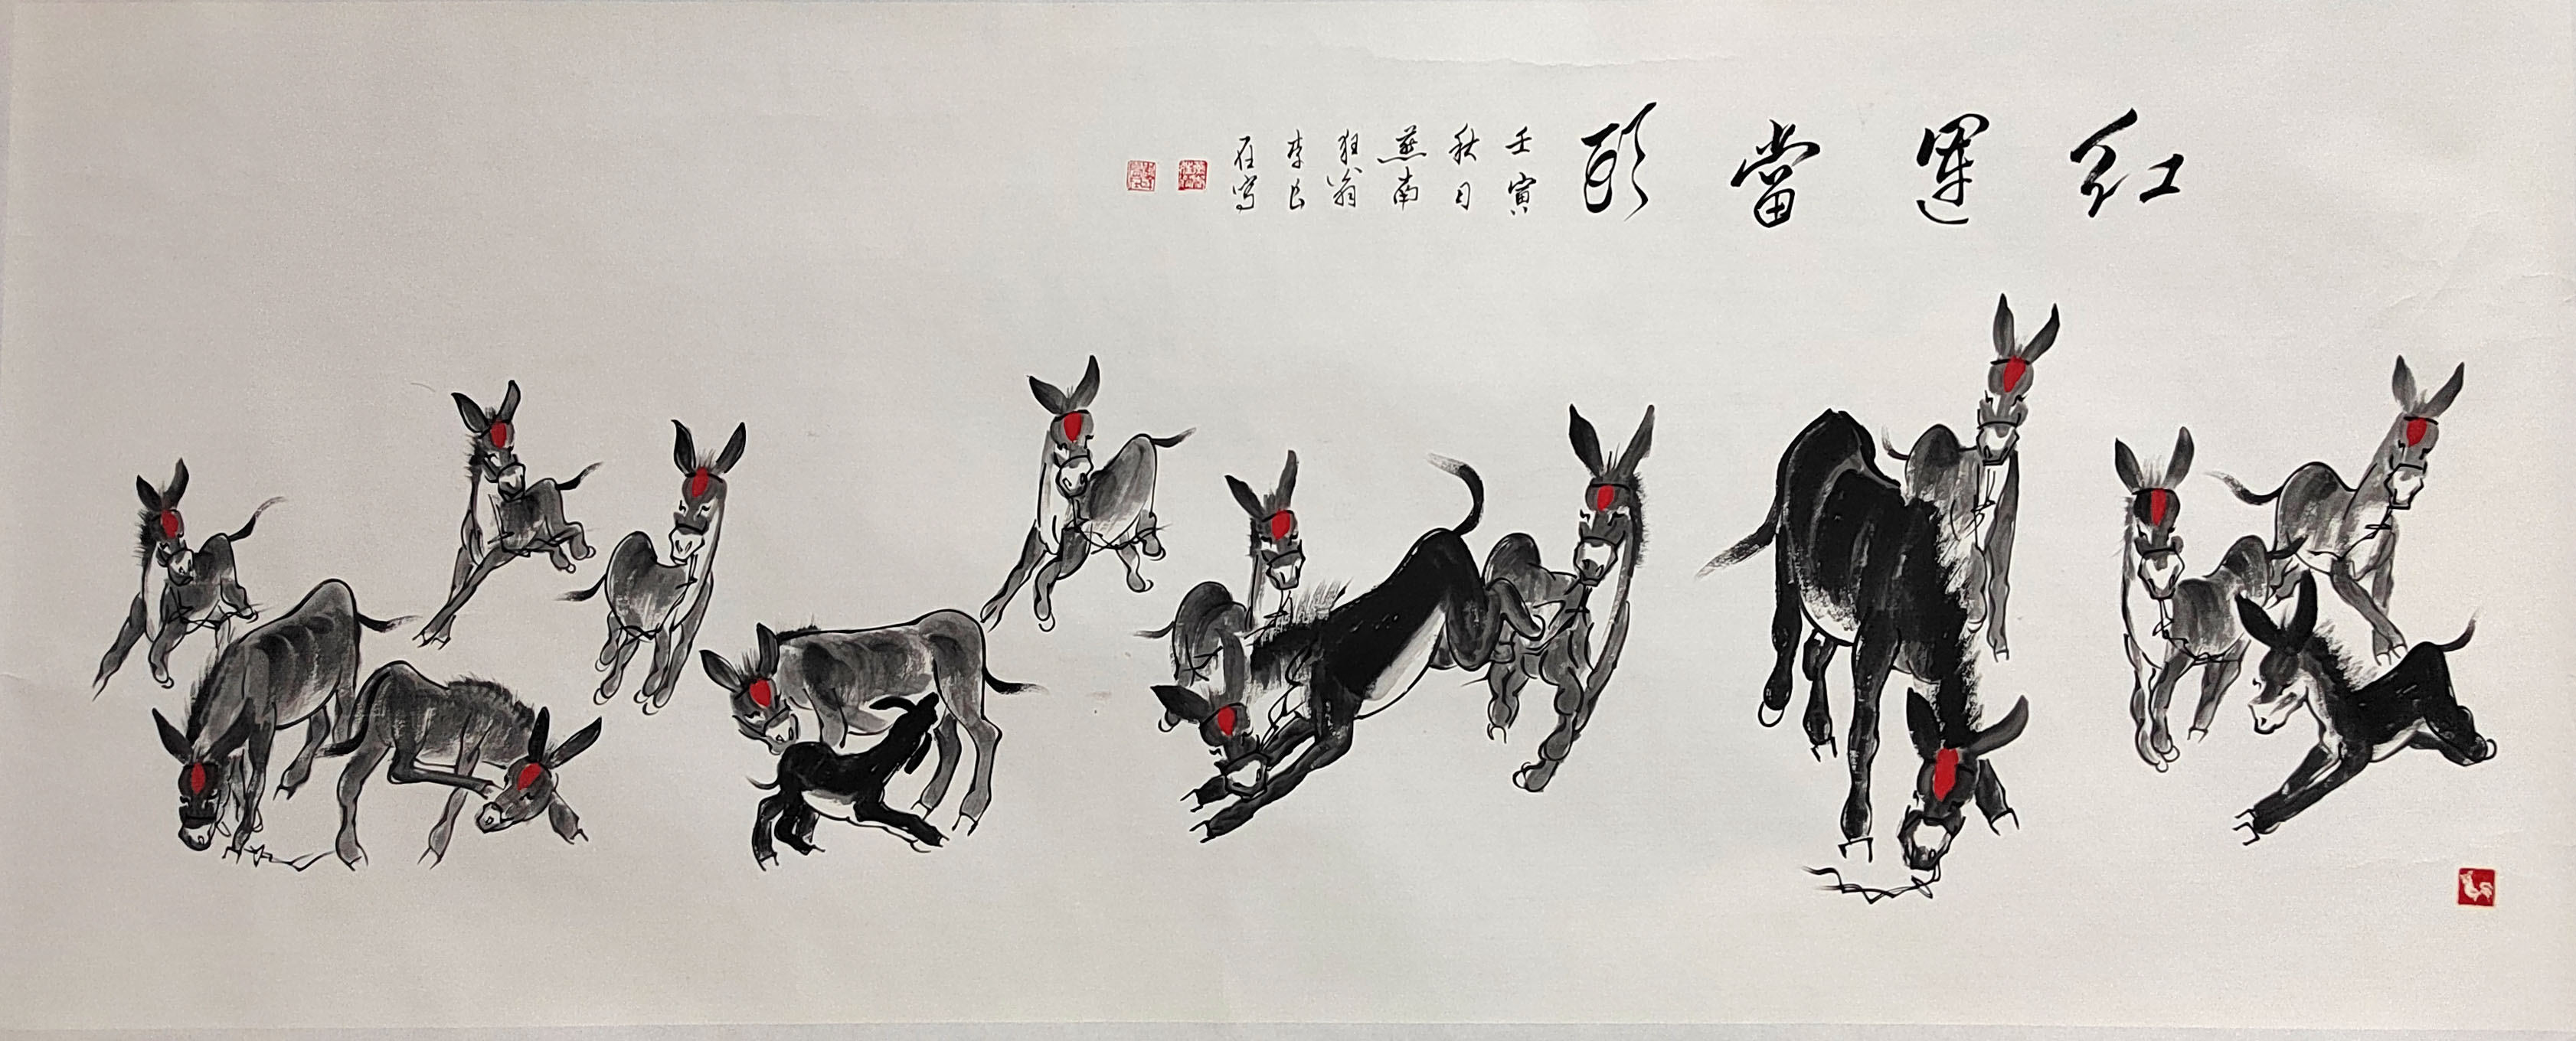 红運當頭
壬寅
秋日
燕南
狂翁
李長
在写